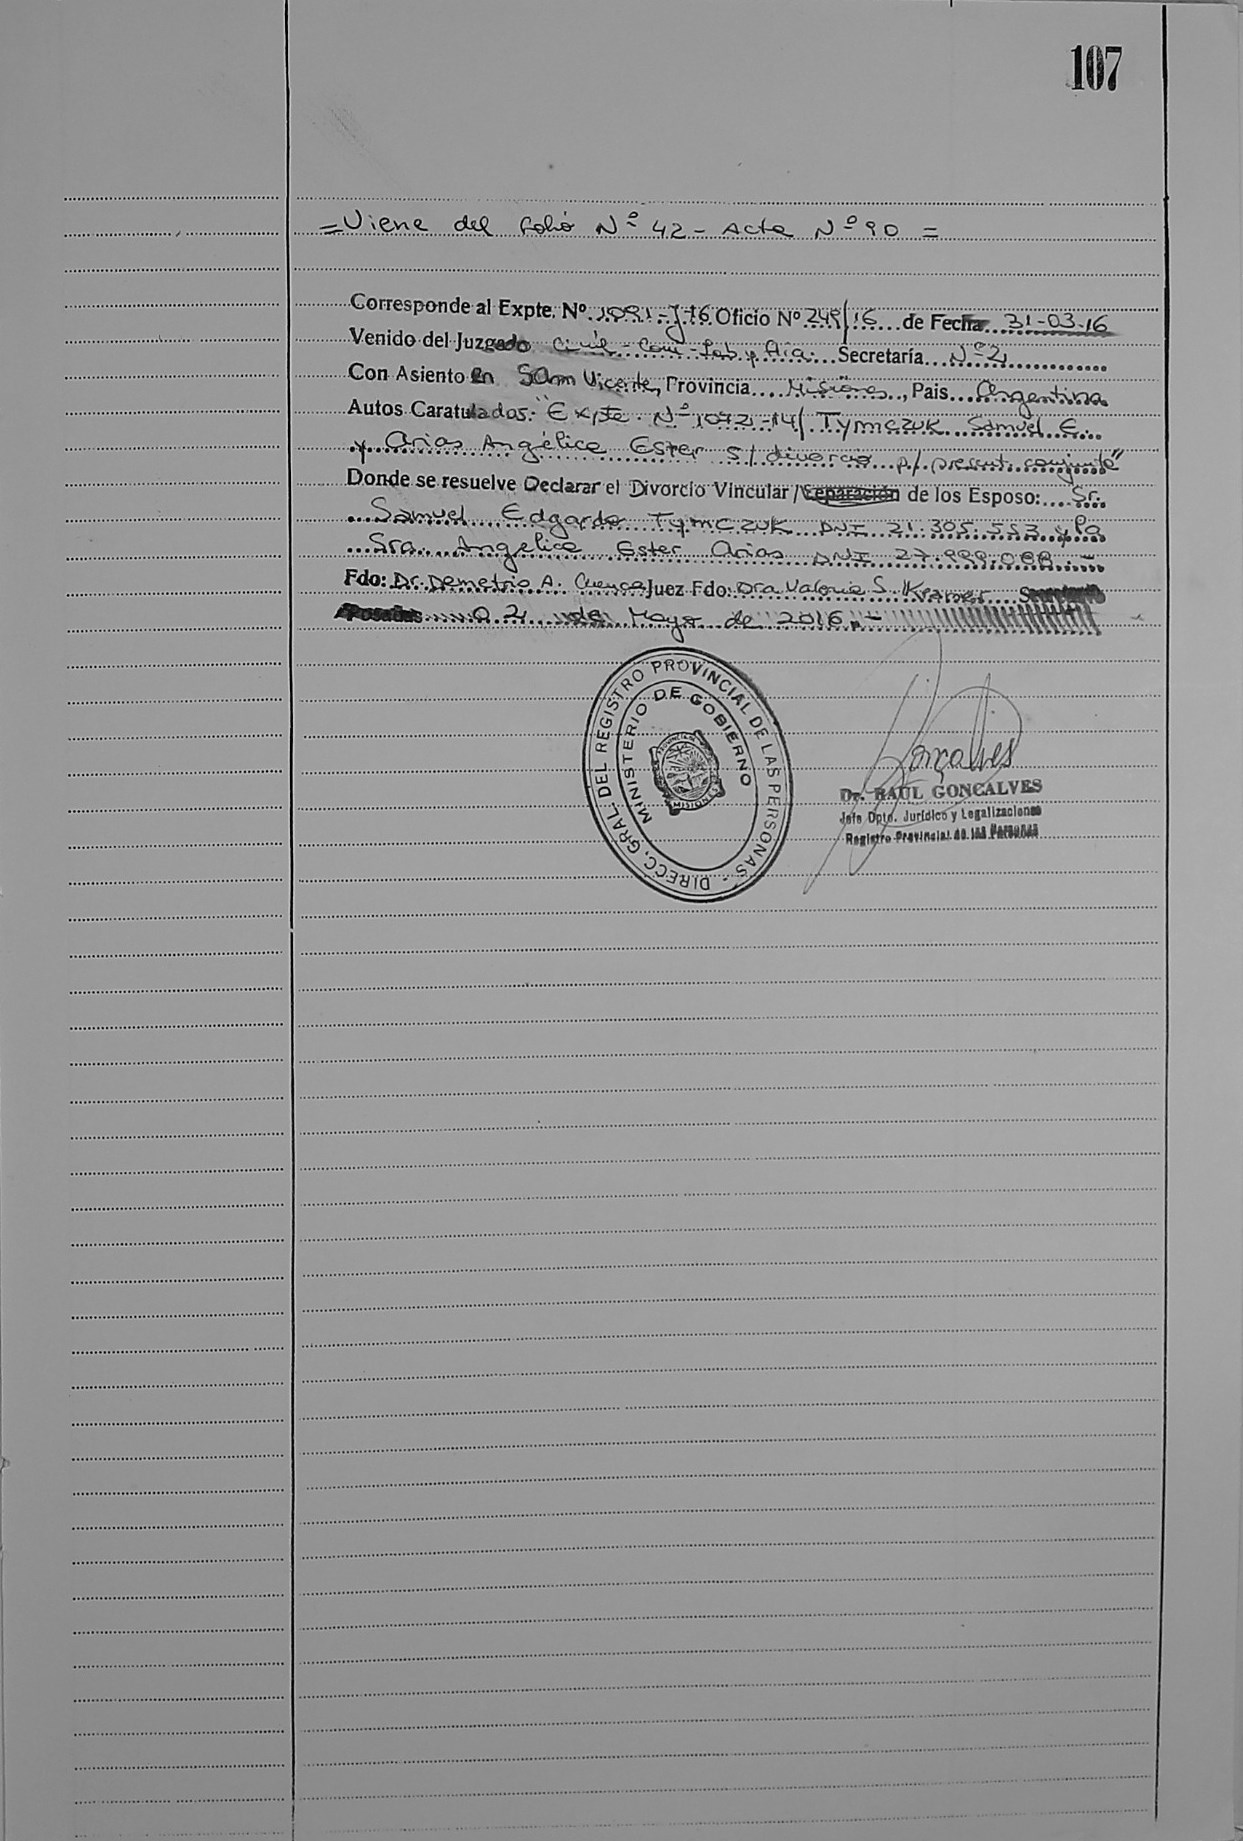 107
= Viene del folio Nº 42 - Acta Nº 90 =
Corresponde al Expte. Nº 1091-J-16 Oficio Nº 249/16 de Fecha 31-03-16
Venido del Juzgado Civil - Com - Lab y Flia. Secretaría Nº 2
Con Asiento en San Vicente, Provincia Misiones, Pais Argentina
Autos Caratulados: "Expte. Nº 1072-14/ Tymczuk Samuel E.
y Arias Angélica Ester s/ divorcio p/ present. conjunta"
Donde se resuelve Declarar el Divorcio Vincular / Separación de los Esposo: Sr.
Samuel Edgardo Tymczuk DNI 21.305.553 y la
Sra. Angelica Ester Arias DNI 27.999.088 -
Fdo: Dr. Demetrio A. Cuenca Juez Fdo: Dra Valeria S. Kramer Secretaria
Posadas 02 de Mayo de 2016.-
DIRECC. GRAL. DEL REGISTRO PROVINCIAL DE LAS PERSONAS -
MINISTERIO DE GOBIERNO
MISIONES
Gonçalves
Dr. RAUL GONCALVES
Jefe Dpto. Jurídico y Legalizaciones
Registro Provincial de las Personas